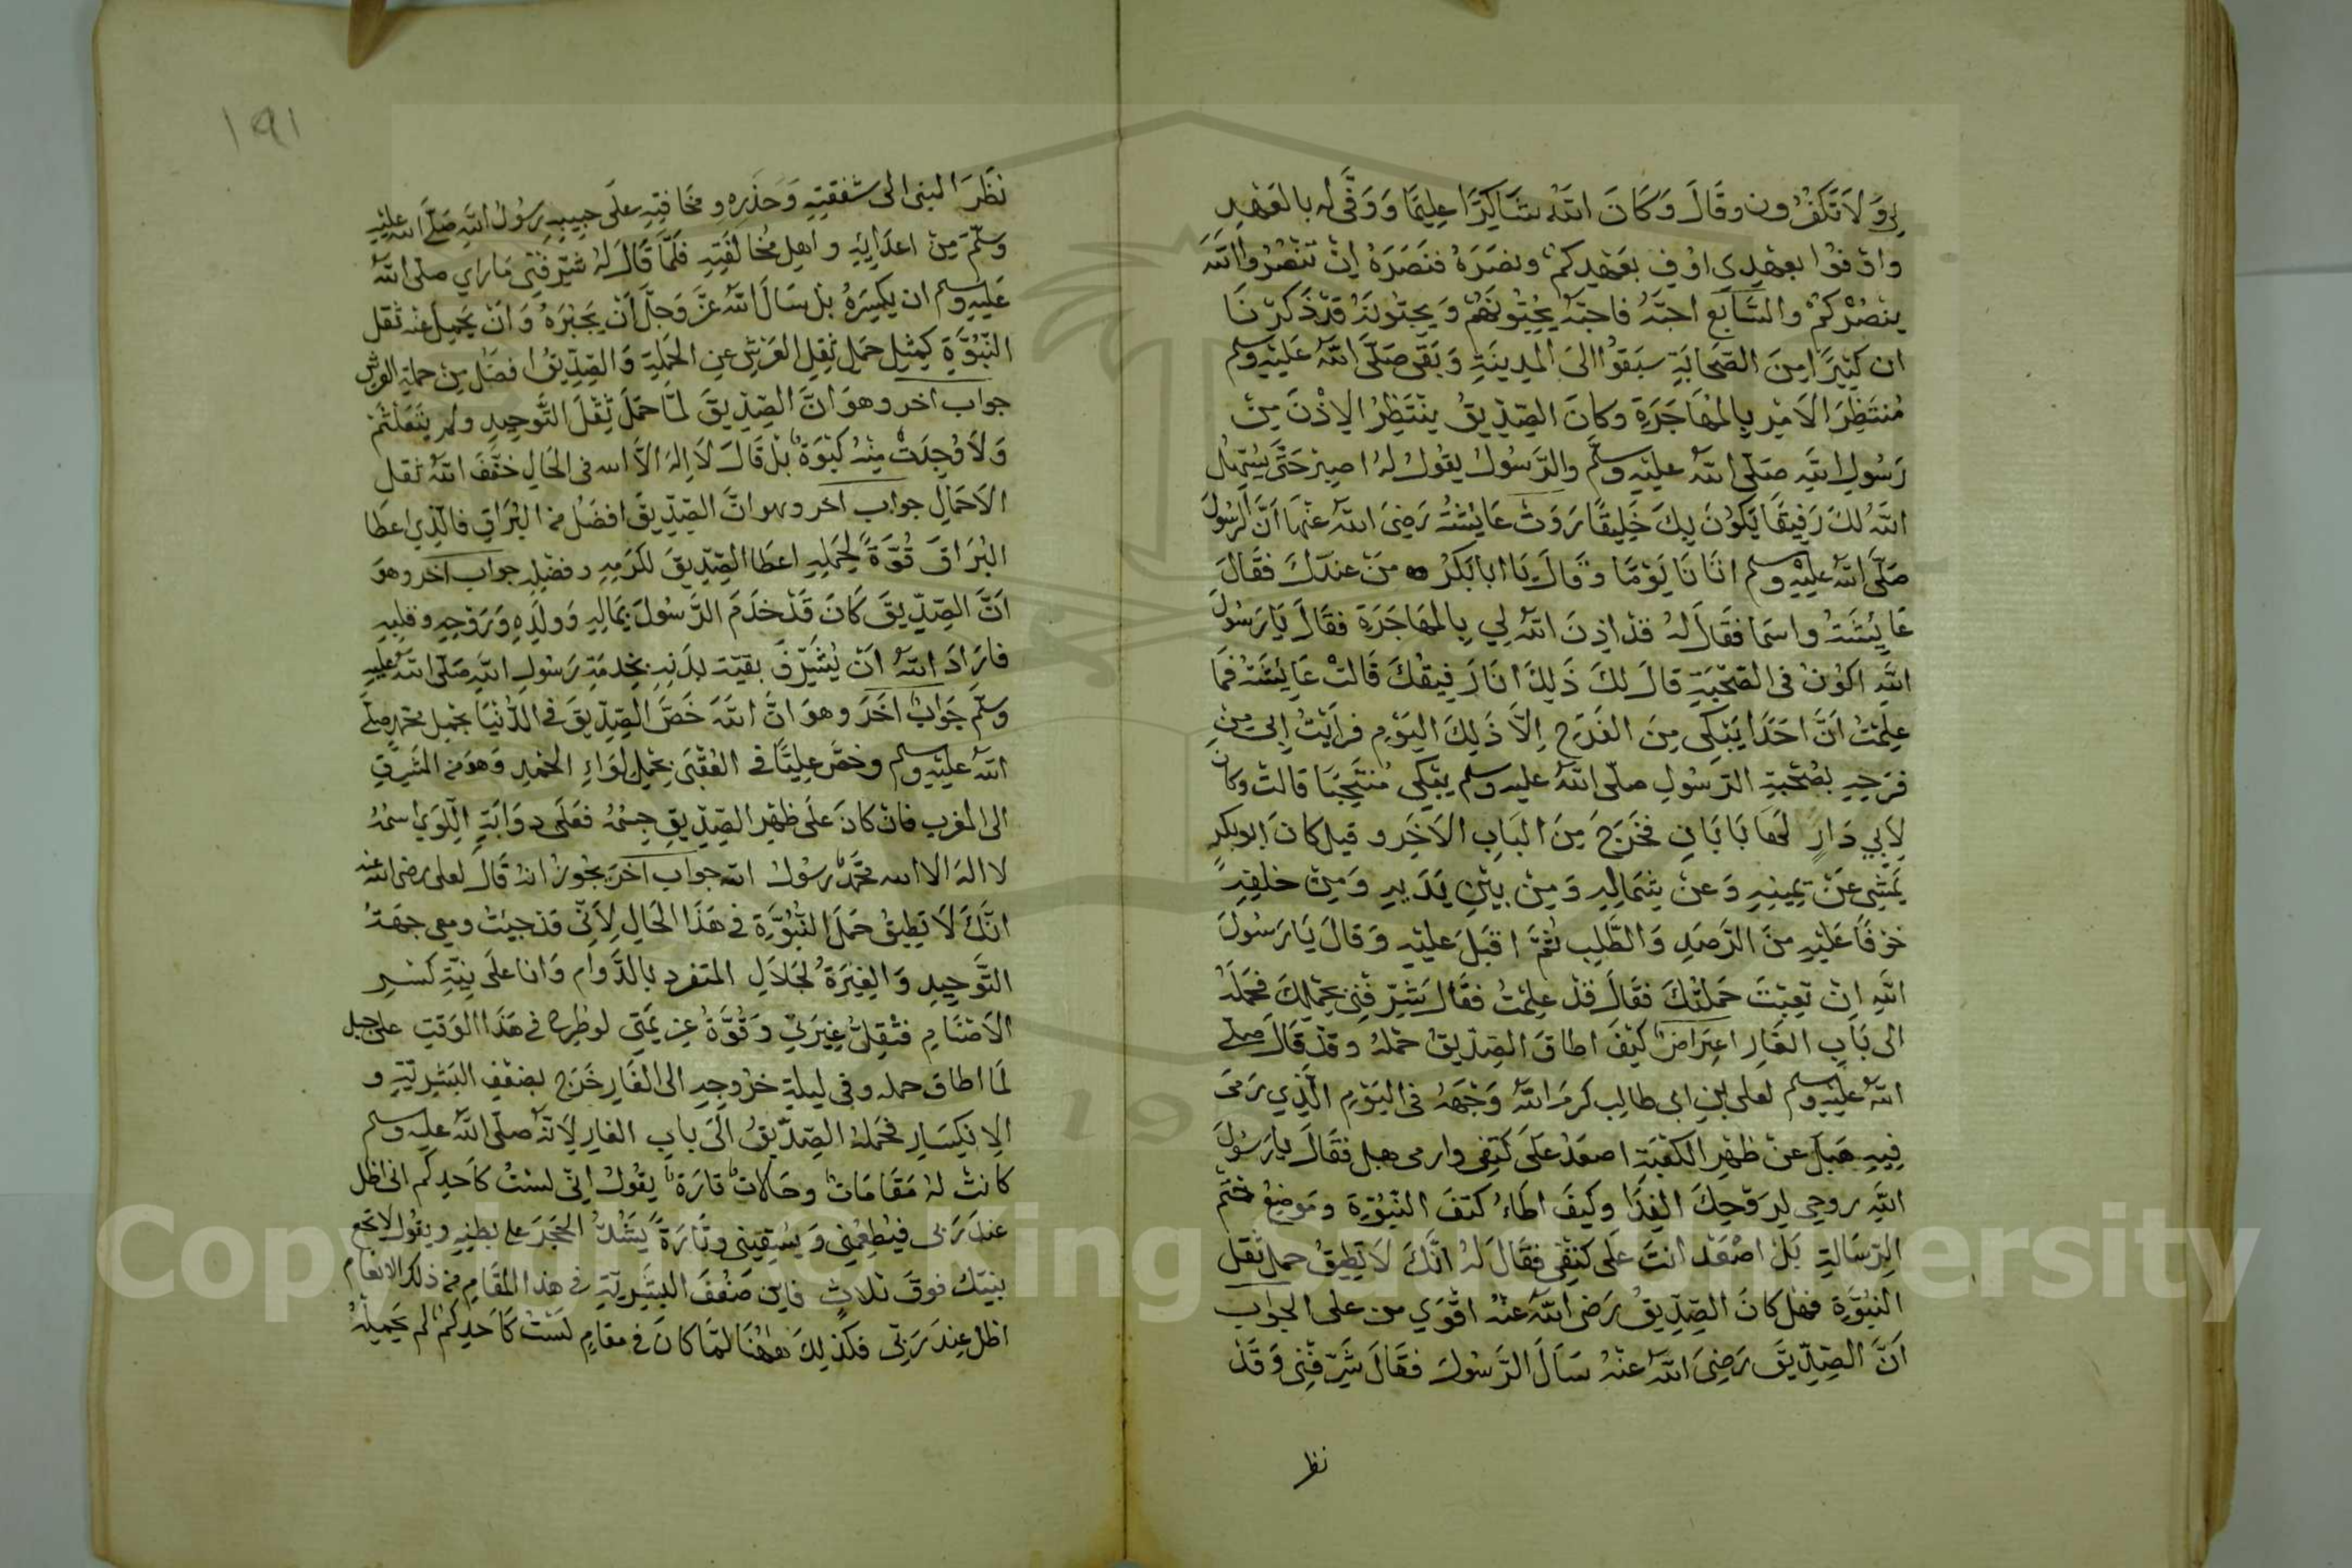 لي وَلَا تَكْفُرُون وقَالَ وَكَانَ اللهُ شَاكِرًا عَلِيمًا وَوَفَّى له بالعَهْدِ
وَاوْفُوا بِعَهْدِي اوُفِ بِعَهْدِكُمْ ونصَرَهُ فَنَصَرَهُ اِنْ تَنْصُرُوا اللَّهَ
ينْصُرْكُمْ والسَّابع احبّهُ فاحبّهُ يُحِبُّونَهُمْ وَيحبّونَهُ قَدْ ذَكَرْنَا
ان كَثِيرًا مِنَ الصَّحَابَةِ سبَقُوا الىَ المدِينَةِ وَبَقَى صَلَّى اللهُ عَلَيْهِ وسلم
مُنتَظِرَ الاَمْرِ بِالمُهَاجَرَةِ وكانَ الصِّدِّيقُ ينْتَظِرُ الاِذْنَ مِنْ
رَسُولِ اللهِ صَلّى اللهُ عليْهِ وسلَّم والرَّسُولُ يقُولُ لهُ اصبِرْ حَتَّى يُسَهِّلُ
اللهُ لكَ رَفِيقًا يَكُونُ بِكَ خَلِيقًا رَوَتْ عَايِشَةُ رَضِيَ اللهُ عنْهَا اَنَّ الرسُولَ
صَلَّى اللهُ عَلَيْهِ وسلم اتَانَا يَوْمًا وقَالَ يَا ابا بَكْرُ مَنْ عندَكَ فقَالَ
عَايِشَةُ واسمَا فقَالَ لهُ قدْ اذِنَ اللهُ لِي بِالمُهَاجَرَةِ فقَالَ يَا رَسُولَ
اللهِ اكُونُ فى الصُّحْبَةِ قالَ لكَ ذَلِكَ انَا رَفيقُكَ قَالتْ عَايِشَةُ فمَا
علِمْتُ اَنَّ احَدًا يَبْكِى مِنَ الفَرَحِ اِلاَّ ذَلِكَ اليَوْمِ فرَاَيْتُ اَبِى مِنْ
فرَحِهِ بصُحْبَةِ الرَّسُولِ صلّى اللهُ عليه وسلم يبْكِى مُنتَحِبًا قالتْ وكانَ
لِاَبِي دَارٍ لهَا بَابَانِ فخَرَجَ مِنَ البَابِ الاَخَرِ و قيل كانَ ابو بكرٍ
يَمْشِى عَنْ يَمِينِهِ وَعَنْ شِمَالِهِ وَمِنْ بيْنِ يَدَيْهِ وَمِنْ خلفِهِ
خوْفًا عَليْهِ مِنَ الرَّصَدِ وَالطَّلبِ ثُمَّ اقبَلَ عليْهِ وَقالَ يَا رَسُولَ
اللهِ اِنْ تَعِبْتَ حَمَلْتُكَ فقَالَ قدْ علِمْتُ فقَالَ شَرِّفْنِى بِحَمْلِكَ فحَمَلَهُ
الى بَابِ الغَارِ اعتِرَاضٌ كَيْفَ اطاقَ الصِّدِّيقُ حمْلهُ وقدْ قَالَ صلى
اللهُ عليْهِ وسلم لعلى بْنِ ابى طالِب كرمَ اللهُ وَجْهَهُ فى اليَوْمِ الَّذِي رَمَى
فِيهِ هَبَلَ عَنْ ظهْرِ الكَعْبَةِ اصعَدْ عَلَى كَتِفِى وارمى هبل فقَالَ يا رَسُولَ
اللهِ روحى لِرَوْحِكَ الفِدَا وكَيفَ اطَاءُ كتفَ النّبُوّةِ ومَوضِعُ ختْم
الرِّسَالةِ بَلْ اصْعَدْ انتَ عَلى كتفِى فقَالَ لهُ انَّكَ لَا تُطِيقُ حملَ ثقلَ
النّبُوّةِ فهل كانَ الصِّدِّيقُ رَضىَ اللهُ عنْهُ اقْوَي من على الجوَاب
اَنَّ الصِّدِّيقَ رَضِيَ اللهُ عَنْهُ سَاَلَ الرَّسُولَ فقَالَ شَرِّفْنِى وَقَدْ
نظر
١٩١
نَظَرَ النبى الى شفقتِهِ وَحَذَرِهِ و مخَافتِهِ عَلَى حبِيبِهِ رسُولُ اللهِ صَلَّى اللهُ عليْهِ
وسلَّمَ مِنْ اعدَايِهِ و اهلِ مُخالفَتِهِ فلَمَّا قَالَ لهُ شرِّفْنِى مَا رَاي صلّى اللهُ
عَليهِ وسلم ان يكْسِرَهُ بلْ سَالَ اللهَ عَزَّ وَجلَّ اَنْ يَجْبُرَهُ وَانْ يَحْمِلَ عنه ثقل
النّبُوَّةِ كمِثْلِ حَمْلِ ثقلِ العَرْشِ عنِ الحَمَلةِ وَالصِّدِّيقُ افضَلُ مِنْ حملةِ العَرْشِ
جواب آخر وهوَ انَّ الصِّدِّيقَ لمَّا حَمَلَ ثِقْلَ التَّوحِيدِ ولم يتَلَعْثَمْ
وَلاَ وُجِدَتْ مِنْهُ كَبْوَةٌ بلْ قَالَ لاَ الهَ الاَّ الله فى الحَالِ خفَّفَ اللهُ ثقل
الاَحمَالِ جواب آخر وهو انَّ الصِّدِّيقَ افضَلُ من البُرَاقِ فالّذِي اعطَا
البُرَاقَ قُوَّةً لِحَملِهِ اعطَا الصِّدِّيقَ لكَرَمِهِ وفضْلِهِ جواب آخر وهوَ
اَنَّ الصِّدِّيقَ كَانَ قَدْ خدَمَ الرَّسُولَ بمَالِهِ وَولدِهِ وَرَوْحِهِ وقلبِهِ
فارَادَ اللهُ اَنْ يُشَرِّفَ بقيّةَ بدَنِهِ بخِدمَةِ رَسُولِ اللهِ صَلّى اللهُ عليْهِ
وسلّم جَوَابٌ آخَرَ وهوَ انَّ اللهَ خَصَّ الصِّدِّيقَ فى الدُّنيَا بحَملِ محمّدٍ صلّى
اللهُ عليْهِ وسلم وخصَّ عليًّا فى العُقْبَى بحَملِ لوَاءِ الحَمْدِ وَهوَ من المَشْرِقِ
الى المغرب فان كانَ عَلَى ظهْرِ الصِّدِّيقِ جِسْمُهُ فعَلى دوابَةِ اللِّوَي اسْمُهُ
لا اله الا الله محَمّدٌ رسُولُ الله جواب آخرَ يجُوزُ انهُ قَالَ لعلى رضى الله عنه
انَّكَ لَا تُطِيقُ حَمْلَ النُّبُوَّةِ فى هَذَا الحَالِ لِاَنّى قدْ جيتُ ومعى جهةُ
التَّوحِيدِ وَالغِيْرَةُ لجَلَالِ المتفردِ بالدَّوامِ وَانا عَلَى نِيّةِ كسْرِ
الاَصْنَامِ فثِقلُ غِيرَتِى وَقُوَّةُ عزيمَتِى لو طرِحا فى هَذَا الوَقتِ على جبل
لَمَا اطاقَ حمله وفى ليلةِ خرُوجِهِ الى الغَارِ خَرَجَ بضعْفِ البَشَرِيّةِ و
الاِنكِسَارِ فحَملهُ الصِّدِّيقُ اِلَى بابِ الغارِ لِاَنّهُ صلّى اللهُ عليه وسلم
كانتْ لهُ مَقَامَاتٌ وحَالاتٌ تارَةً يقُولُ اِنّى لسْتُ كاَحدِكم انى اظل
عندَ رَبى فيُطعِمُنِى وَيُسْقِينِى وتَارَةً يَشُدُّ الحَجَرَ على بطنِهِ ويقُولُ لا تجع
بنيّكَ فوقَ ثلاثٍ فاين ضَعْفَ البَشَرِيّةِ فى هذا المقَامِ من ذلك الانعَام
اظل عِندَ رَبّى فكَذلِكَ هٰهُنَا لمَّا كانَ فى مقامِ لسْتُ كاَحدِكُم لم يَحمِلْهُ